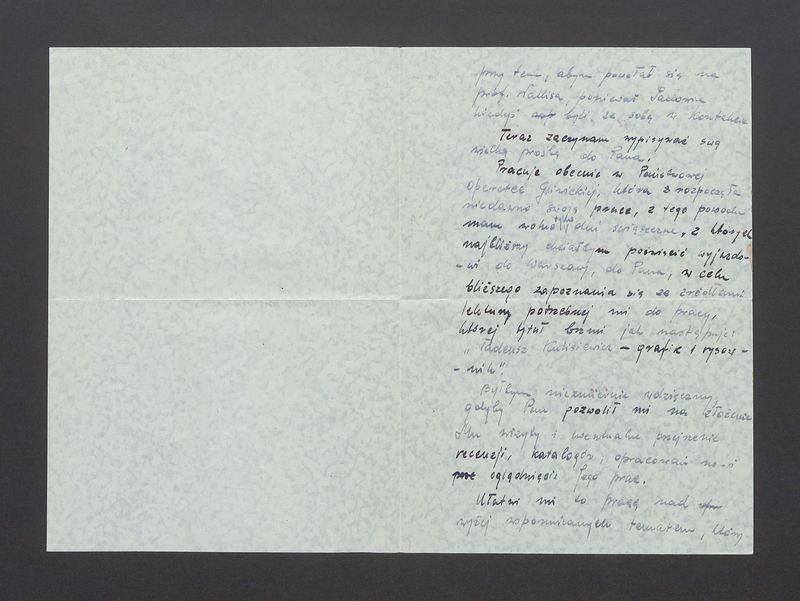 przy tem, abym powołał się na
prof. Wallisa, ponieważ Panowie
kiedyś byli ze sobą w kontakcie
Teraz zaczynam wypisywać swą
wielką prośbę do Pana.
Pracuję obecnie w Państwowej
operetce Gliwickiej, która rozpoczęła
niedawno swoją pracę, z tego powodu
mam wolne tylko dni świąteczne, z których
najbliższy chciałbym poświęcić wyjazdo-
-wi do Warszawy, do Pana, w celu
bliższego zapoznania się ze źródłami
lektury potrzebnej mi do pracy,
której tytuł brzmi jak następuje:
"Tadeusz Kulisiewicz – grafik i rysow-
-nik".
Byłbym niezmiernie wdzięczny,
gdyby Pan pozwolił mi na złożenie
Mu wizyty i ewentualne przejrzenie
recenzji, katalogów, opracowań i
oglądnięcie Jego prac.
Ułatwi mi to pracę nad
wyżej wspomnianym tematem, który